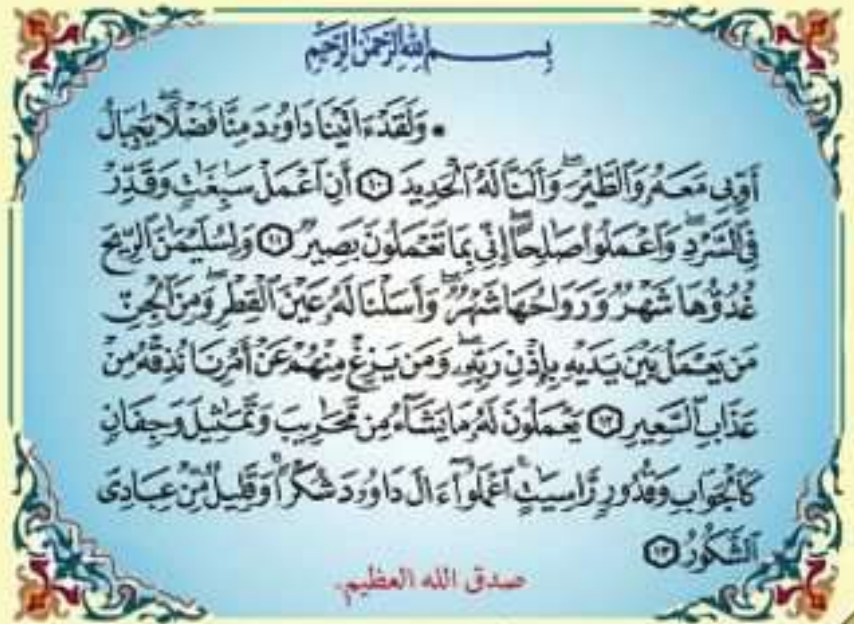 بِسْمِ اللَّهِ الرَّحْمَٰنِ الرَّحِيمِ
۞ وَلَقَدْ ءَاتَيْنَا دَاوُۥدَ مِنَّا فَضْلًا ۖ يَٰجِبَالُ
أَوِّبِى مَعَهُۥ وَٱلطَّيْرَ ۖ وَأَلَنَّا لَهُ ٱلْحَدِيدَ ١٠ أَنِ ٱعْمَلْ سَٰبِغَٰتٍ وَقَدِّرْ
فِى ٱلسَّرْدِ ۖ وَٱعْمَلُوا۟ صَٰلِحًا ۖ إِنِّى بِمَا تَعْمَلُونَ بَصِيرٌ ١١ وَلِسُلَيْمَٰنَ ٱلرِّيحَ
غُدُوُّهَا شَهْرٌ وَرَوَاحُهَا شَهْرٌ ۖ وَأَسَلْنَا لَهُۥ عَيْنَ ٱلْقِطْرِ ۖ وَمِنَ ٱلْجِنِّ
مَن يَعْمَلُ بَيْنَ يَدَيْهِ بِإِذْنِ رَبِّهِۦ ۖ وَمَن يَزِغْ مِنْهُمْ عَنْ أَمْرِنَا نُذِقْهُ مِنْ
عَذَابِ ٱلسَّعِيرِ ١٢ يَعْمَلُونَ لَهُۥ مَا يَشَآءُ مِن مَّحَٰرِيبَ وَتَمَٰثِيلَ وَجِفَانٍ
كَٱلْجَوَابِ وَقُدُورٍ رَّاسِيَٰتٍ ۚ ٱعْمَلُوٓا۟ ءَالَ دَاوُۥدَ شُكْرًا ۚ وَقَلِيلٌ مِّنْ عِبَادِىَ
ٱلشَّكُورُ ١٣
صدق الله العظيم.